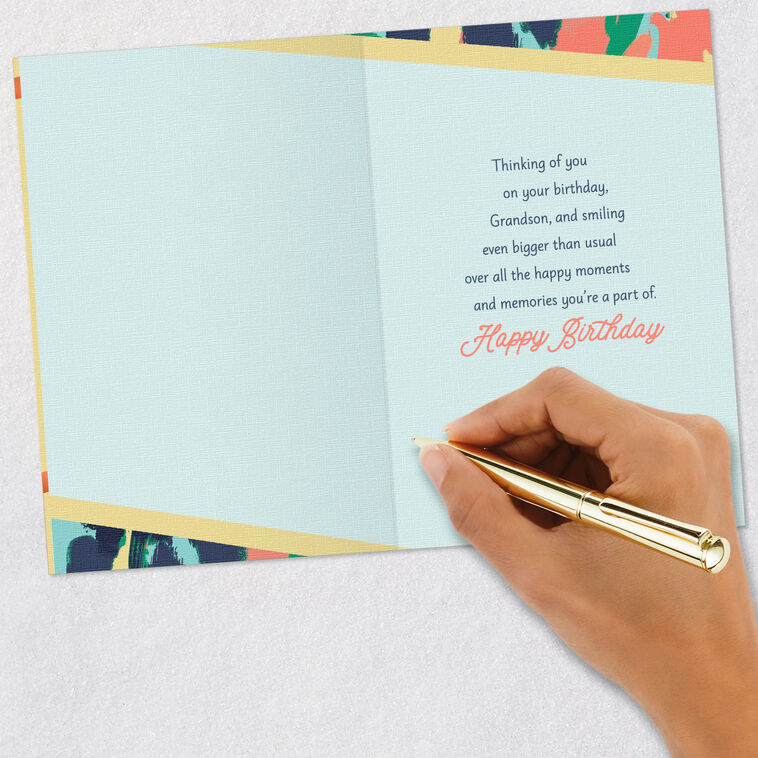 Thinking of you
on your birthday,
Grandson, and smiling
even bigger than usual
over all the happy moments
and memories you're a part of.
Happy Birthday